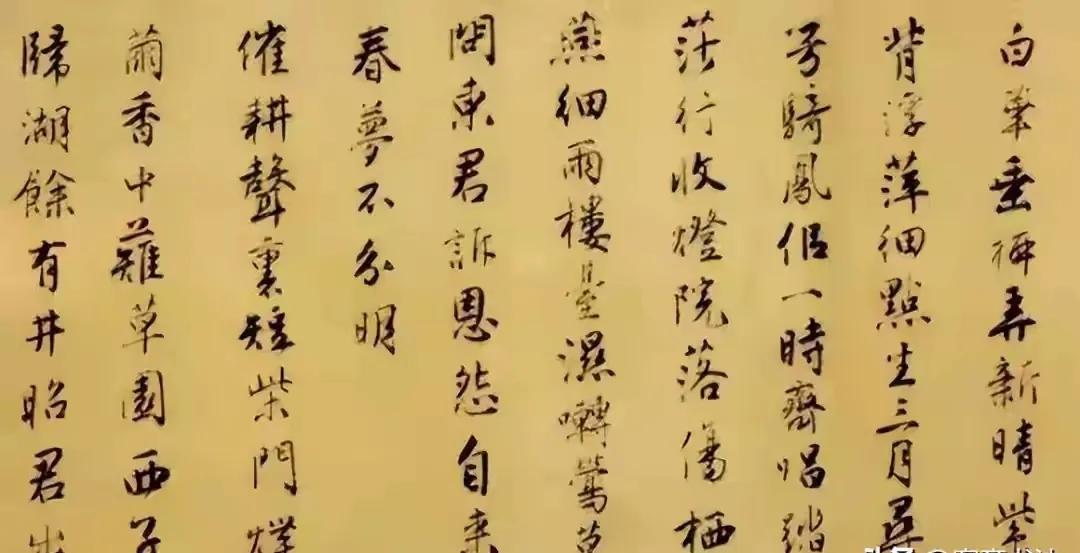 白華垂柳弄新晴紫
背浮萍細點生三月尋
芳騎鳳侶一時齊唱踏
莎行收燈院落傷栖
燕細雨樓臺濕囀鶯莫
問東君訴恩怨自来
春夢不分明
催耕聲裏短柴門煠
繭香中薙草園西子
歸湖餘有井昭君出